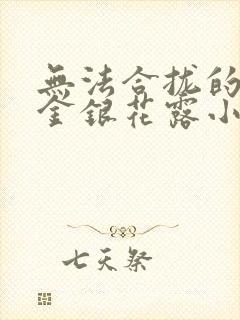 無法合拢的
金銀花露小
七天祭